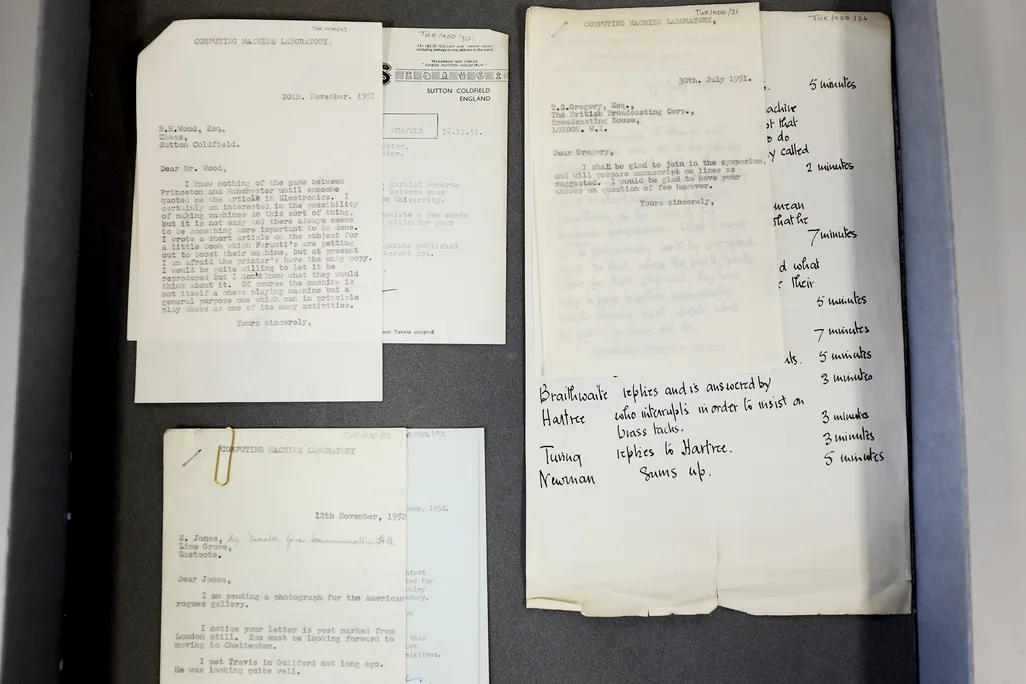 TUR/ADD/43
COMPUTING MACHINE LABORATORY,
20th. November. 1951
B.H.Wood, Esq.,
Chess,
Sutton Coldfield.
Dear Mr. Wood,
I knew nothing of the game between
Princeton and Manchester until someone
quoted me the article in Electronics. I
certainly am interested in the possibility
of making machines do this sort of thing,
but it is not easy and there always seems
to be something more important to be done.
I wrote a short article on the subject for
a little book which Feranti's are getting
out to boost their machine, but at present
I am afraid the printer's have the only copy.
I would be quite willing to let it be
reproduced but I don't know what they would
think about it. Of course the machine is
not itself a chess playing machine but a
general purpose one which can in principle
play chess as one of its many activities.
Yours sincerely,
including postage to any address in the world
TELEGRAMS AND CABLES
"CHESS SUTTON COLDFIELD"
S
SUTTON COLDFIELD
ENGLAND
16.11.51.
reports
between your
n University.
a few words
claim for your
published
terest you.
Book Tokens accepted
COMPUTING MACHINE LABORATORY
12th November, 1952
E. Jones,
Lime Grove,
Eastcote.
Dear Jones,
I am sending a photograph for the American
rogues gallery.
I notice your letter is post marked from
London still. You must be looking forward to
moving to Cheltenham.
I met Travis in Guilford not long ago.
He was looking quite well.
ber, 1952.
for
tory.
this
not
elations.
TUR/ADD/21
COMPUTING MACHINE LABORATORY,
30th. July 1951.
T.S.Gregory, Esq.,
The British Broadcasting Corp.,
Broadcasting House,
LONDON. W.1.
Dear Gregory,
I shall be glad to join in the symposium,
and will prepare manuscript on lines as
suggested. I would be glad to have your
answer on question of fee however.
Yours sincerely,
TUR/ADD/24
5 minutes
machine
that
to do
called
2 minutes
mean
that he
7 minutes
d what
their
5 minutes
7 minutes
5 minutes
Braithwaite replies and is answered by 3 minutes
Hartree who interrupts in order to insist on
brass tacks. 3 minutes
Turing replies to Hartree. 3 minutes
Newman Sums up. 5 minutes